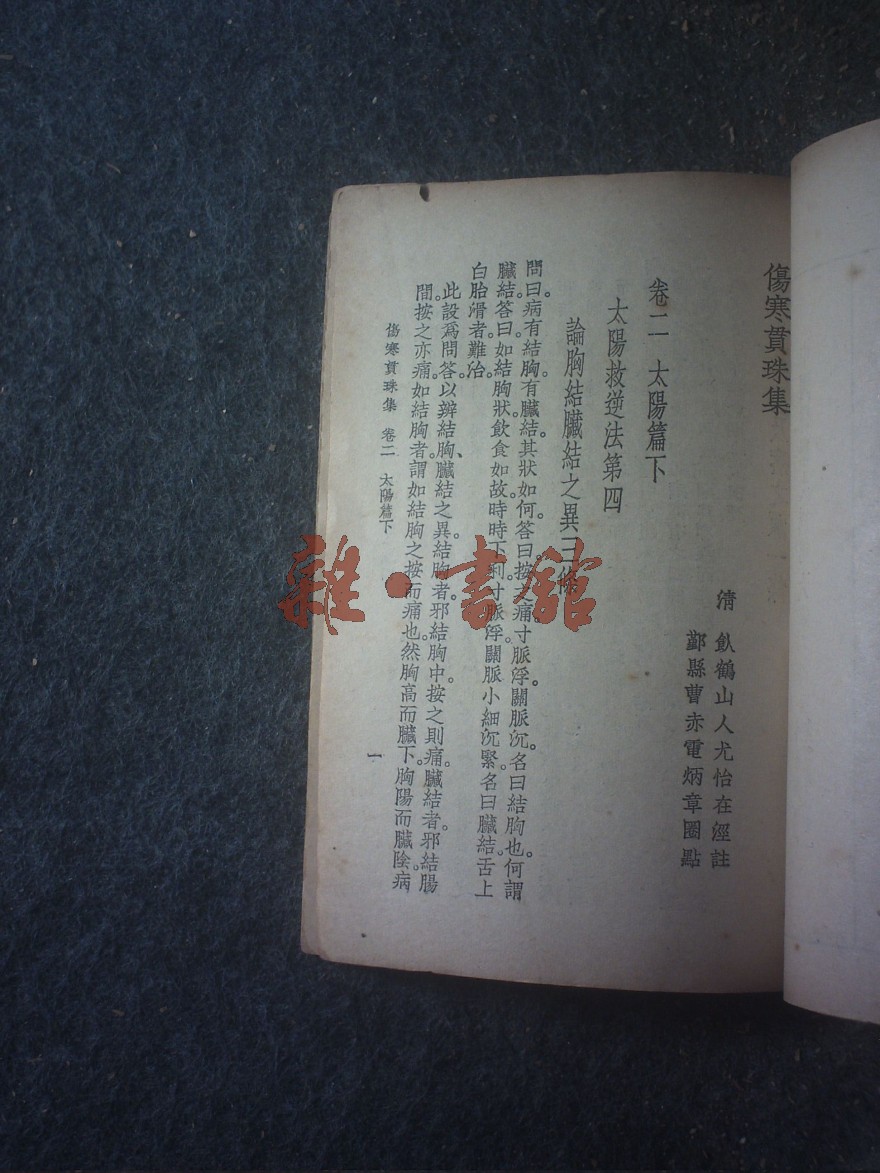 傷寒貫珠集
清 飲鶴山人尤怡在涇註
鄞縣曹赤電炳章圈點
卷二 太陽篇下
太陽救逆法第四
論胸結臟結之異三條
問曰。病有結胸。有臟結。其狀如何。答曰。按之痛。寸脈浮。關脈沉。名曰結胸也。何謂
臟結。答曰。如結胸狀。飲食如故。時時下利。寸脈浮。關脈小細沉緊。名曰臟結。舌上
白胎滑者。難治。
此設爲問答。以辨結胸、臟結之異。結胸者。邪結胸中。按之則痛。臟結者。邪結腸
間。按之亦痛。如結胸者。謂如結胸之按而痛也。然胸高而臟下。胸陽而臟陰。病
傷寒貫珠集 卷二 太陽篇下
一
雜·書館